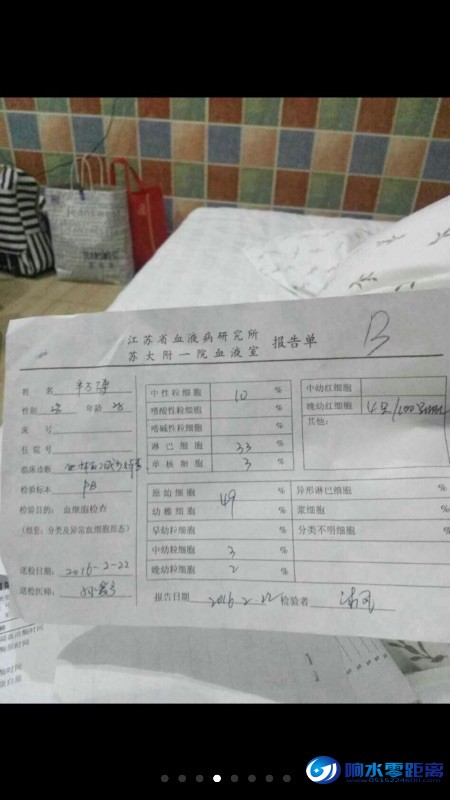 江苏省血液病研究所
苏大附一院血液室 报告单
B
姓 名
性别 年龄
床 号
住 院 号
临床诊断
检验标本 PB
检验目的: 血细胞检查
(细胞: 分类及异常血细胞形态)
送检日期: 2016-2-22
送检医师:
中性粒细胞 10 %
嗜酸性粒细胞 %
嗜碱性粒细胞 %
淋巴细胞 33 %
单核细胞 3 %
原始细胞 49 %
幼稚细胞 %
早幼粒细胞 %
中幼粒细胞 3 %
晚幼粒细胞 2 %
中幼红细胞
晚幼红细胞 4只/100
其他:
异形淋巴细胞 %
浆细胞 %
分类不明细胞 %
报告日期 2016.2.22 检验者
响水零距离